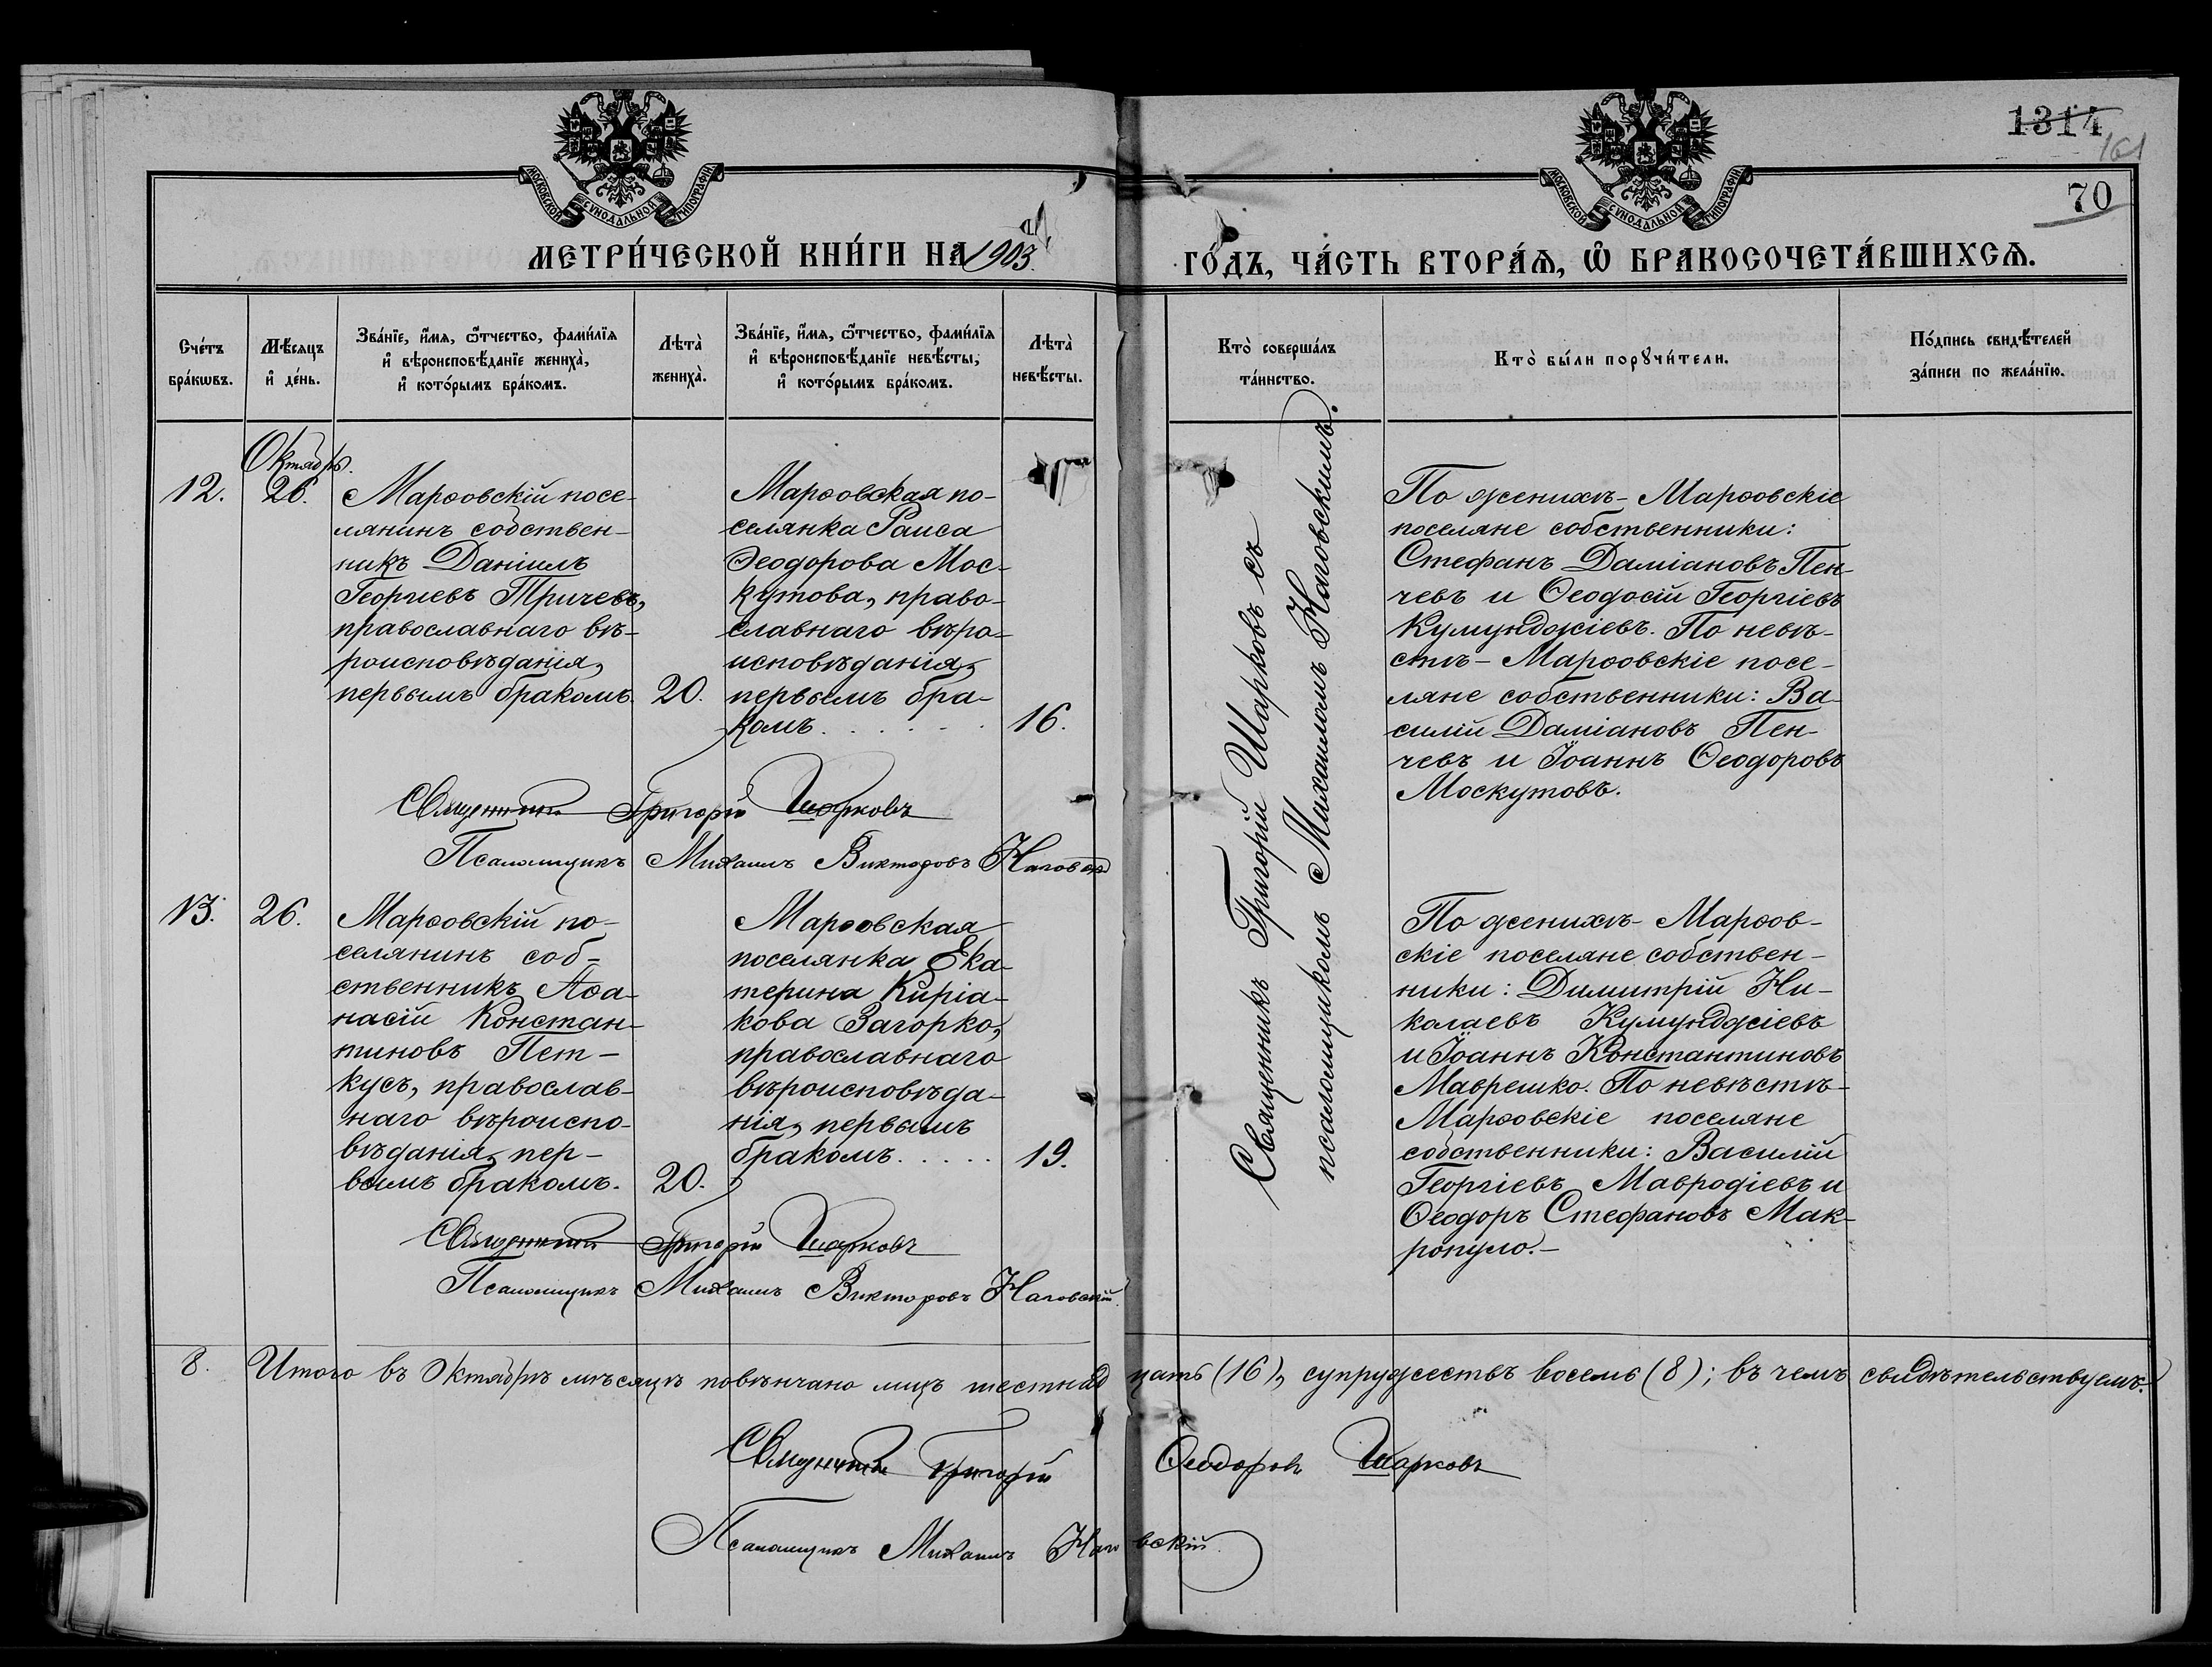 МОСКОВСКОЙ СѴНОДАЛЬНОЙ ТИПОГРАФІИ
МОСКОВСКОЙ СѴНОДАЛЬНОЙ ТИПОГРАФІИ
1314
161
70
МЕТРИ́ЧЕСКОЙ КНИ́ГИ НА 1903.
ГО́ДЪ, ЧА́СТЬ ВТОРА́Ѧ, Ѽ БРАКОСОЧЕТА́ВШИХСѦ.
Сче́тъ бра́кѡвъ.
Мѣ́сяцъ и҆ де́нь.
Зва́нїе, и҆́мѧ, ѻ҆́тчество, фами́лїѧ
и҆ вѣроисповѣ́данїе жениха̀,
и҆ кото́рымъ бра́комъ.
Лѣта̀ жениха̀.
Зва́нїе, и҆́мѧ, ѻ҆́тчество, фами́лїѧ
и҆ вѣроисповѣ́данїе невѣ́сты,
и҆ кото́рымъ бра́комъ.
Лѣта̀ невѣ́сты.
Кто̀ соверша́лъ та́инство.
Кто̀ бы́ли порꙋчи́тели.
По́дпись свидѣ́телей
за́писи по жела́нїю.
Октябрь.
12.
26.
Марѳовскій посе-
лянинъ собствен-
никъ Даніилъ
Георгіевъ Тричевъ,
православнаго вѣ-
роисповѣданія,
первымъ бракомъ.
20.
Марѳовская по-
селянка Раиса
Ѳеодорова Мос-
кутова, право-
славнаго вѣро-
исповѣданія,
первымъ бра-
комъ. . . . . .
16.
Священникъ Григорій Шарковъ съ
псаломщикомъ Михаиломъ Наговскимъ.
По женихѣ - Марѳовскіе
поселяне собственники:
Стефанъ Даміановъ Пен-
чевъ и Ѳеодосій Георгіевъ
Кумунджіевъ. По невѣ-
стѣ - Марѳовскіе посе-
ляне собственники: Ва-
силій Даміановъ Пен-
чевъ и Іоаннъ Ѳеодоровъ
Москутовъ.
Священникъ Григорій Шарковъ
Псаломщикъ Михаилъ Викторовъ Наговскій
13.
26.
Марѳовскій по-
селянинъ соб-
ственникъ Аѳа-
насій Констан-
тиновъ Пет-
кусъ, православ-
наго вѣроиспо-
вѣданія, пер-
вымъ бракомъ.
20.
Марѳовская
поселянка Ека-
терина Киріа-
кова Загорко,
православнаго
вѣроисповѣда-
нія, первымъ
бракомъ. . . . .
19.
По женихѣ - Марѳов-
скіе поселяне собствен-
ники: Димитрій Ни-
колаевъ Кумунджіевъ
и Іоаннъ Константиновъ
Маврешко. По невѣстѣ -
Марѳовскіе поселяне
собственники: Василій
Георгіевъ Мавродіевъ и
Ѳеодоръ Стефановъ Мак-
ропуло. -
Священникъ Григорій Шарковъ
Псаломщикъ Михаилъ Викторовъ Наговскій.
8. Итого въ Октябрѣ мѣсяцѣ повѣнчано лицъ шестнадцать (16), супружествъ восемь (8); въ чемъ свидѣтельствуемъ.
Священникъ Григорій Ѳеодоровъ Шарковъ
Псаломщикъ Михаилъ Наговскій.